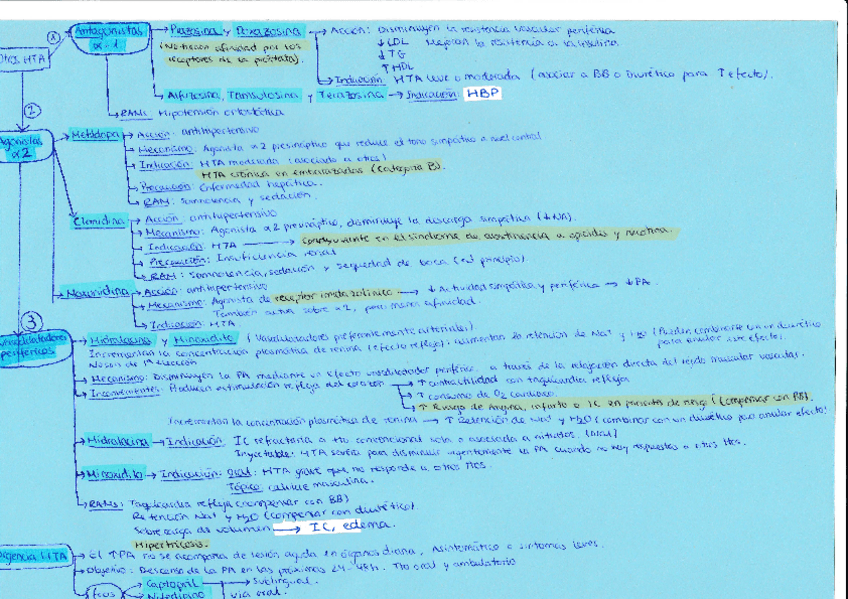 ① Antagonistas α-1
Prazosina y Doxazosina
(No tienen afinidad por los receptores de la próstata).
Acción: Disminuyen la resistencia vascular periférica
↓ LDL Mejoran la resistencia a la insulina.
↓ TG
↑ HDL
Indicación: HTA leve o moderada (asociar a BB o Diurético para ↑ efecto).
Otros HTA
Alfuzosina, Tamsulosina y Terazosina → Indicación: HBP
RAM: Hipotensión ortostática
②
Agonistas α2
Metildopa → Acción: antihipertensivo
Mecanismo: Agonista α2 presináptico que reduce el tono simpático a nivel central
Indicación: HTA moderada (asociado a otros)
HTA crónica en embarazadas (Categoría B).
Precaución: Enfermedad hepática.
RAM: somnolencia y sedación.
Clonidina → Acción: antihipertensivo
Mecanismo: Agonista α2 presináptico, disminuye la descarga simpática (↓NA).
Indicación: HTA → Coadyuvante en el síndrome de abstinencia a opioides y nicotina.
Precaución: Insuficiencia renal
RAM: somnolencia, sedación y sequedad de boca (al principio).
Moxonidina → Acción: antihipertensivo
Mecanismo: Agonista de receptor imidazolínico → ↓ Actividad simpática y periférica → ↓ PA.
También actúa sobre α2, pero menos afinidad.
Indicación: HTA
③
Vasodilatadores periféricos
Hidralacina y Minoxidilo (Vasodilatadores preferentemente arteriales)
Incrementan la concentración plasmática de renina (efecto reflejo): aumentan la retención de Na+ y H2O (Pueden combinarse con un diurético para anular este efecto).
No son de 1ª elección
Mecanismo: Disminuyen la PA mediante un efecto vasodilatador periférico, a través de la relajación directa del tejido muscular vascular.
Inconvenientes: Producen estimulación refleja del corazón → ↑ contractilidad con taquicardia refleja
↑ consumo de O2 cardíaco.
↑ Riesgo de Angina, infarto o IC en pacientes de riesgo (Compensar con BB).
Incrementan la concentración plasmática de renina → ↑ Retención de Na+ y H2O (combinar con un diurético para anular efecto)
Hidralacina → Indicación: IC refractoria a tto convencional sola o asociada a nitratos. (oral)
Inyectable: HTA severa para disminuir urgentemente la PA cuando no hay respuesta a otros ttos.
Minoxidilo → Indicación: Oral: HTA grave que no responde a otros ttos.
Tópico: calvicie masculina.
RAMs: Taquicardia refleja (compensar con BB)
Retención Na+ y H2O (compensar con diurético).
Sobrecarga de volumen → IC, edema.
Hipertricosis.
HTA → El ↑PA no se acompaña de lesión aguda en órganos diana. Asintomático o síntomas leves.
Objetivo: Descenso de la PA en las próximas 24-48h. Tto oral y ambulatorio
Fcos
Captopril → Sublingual.
Nifedipino vía oral.